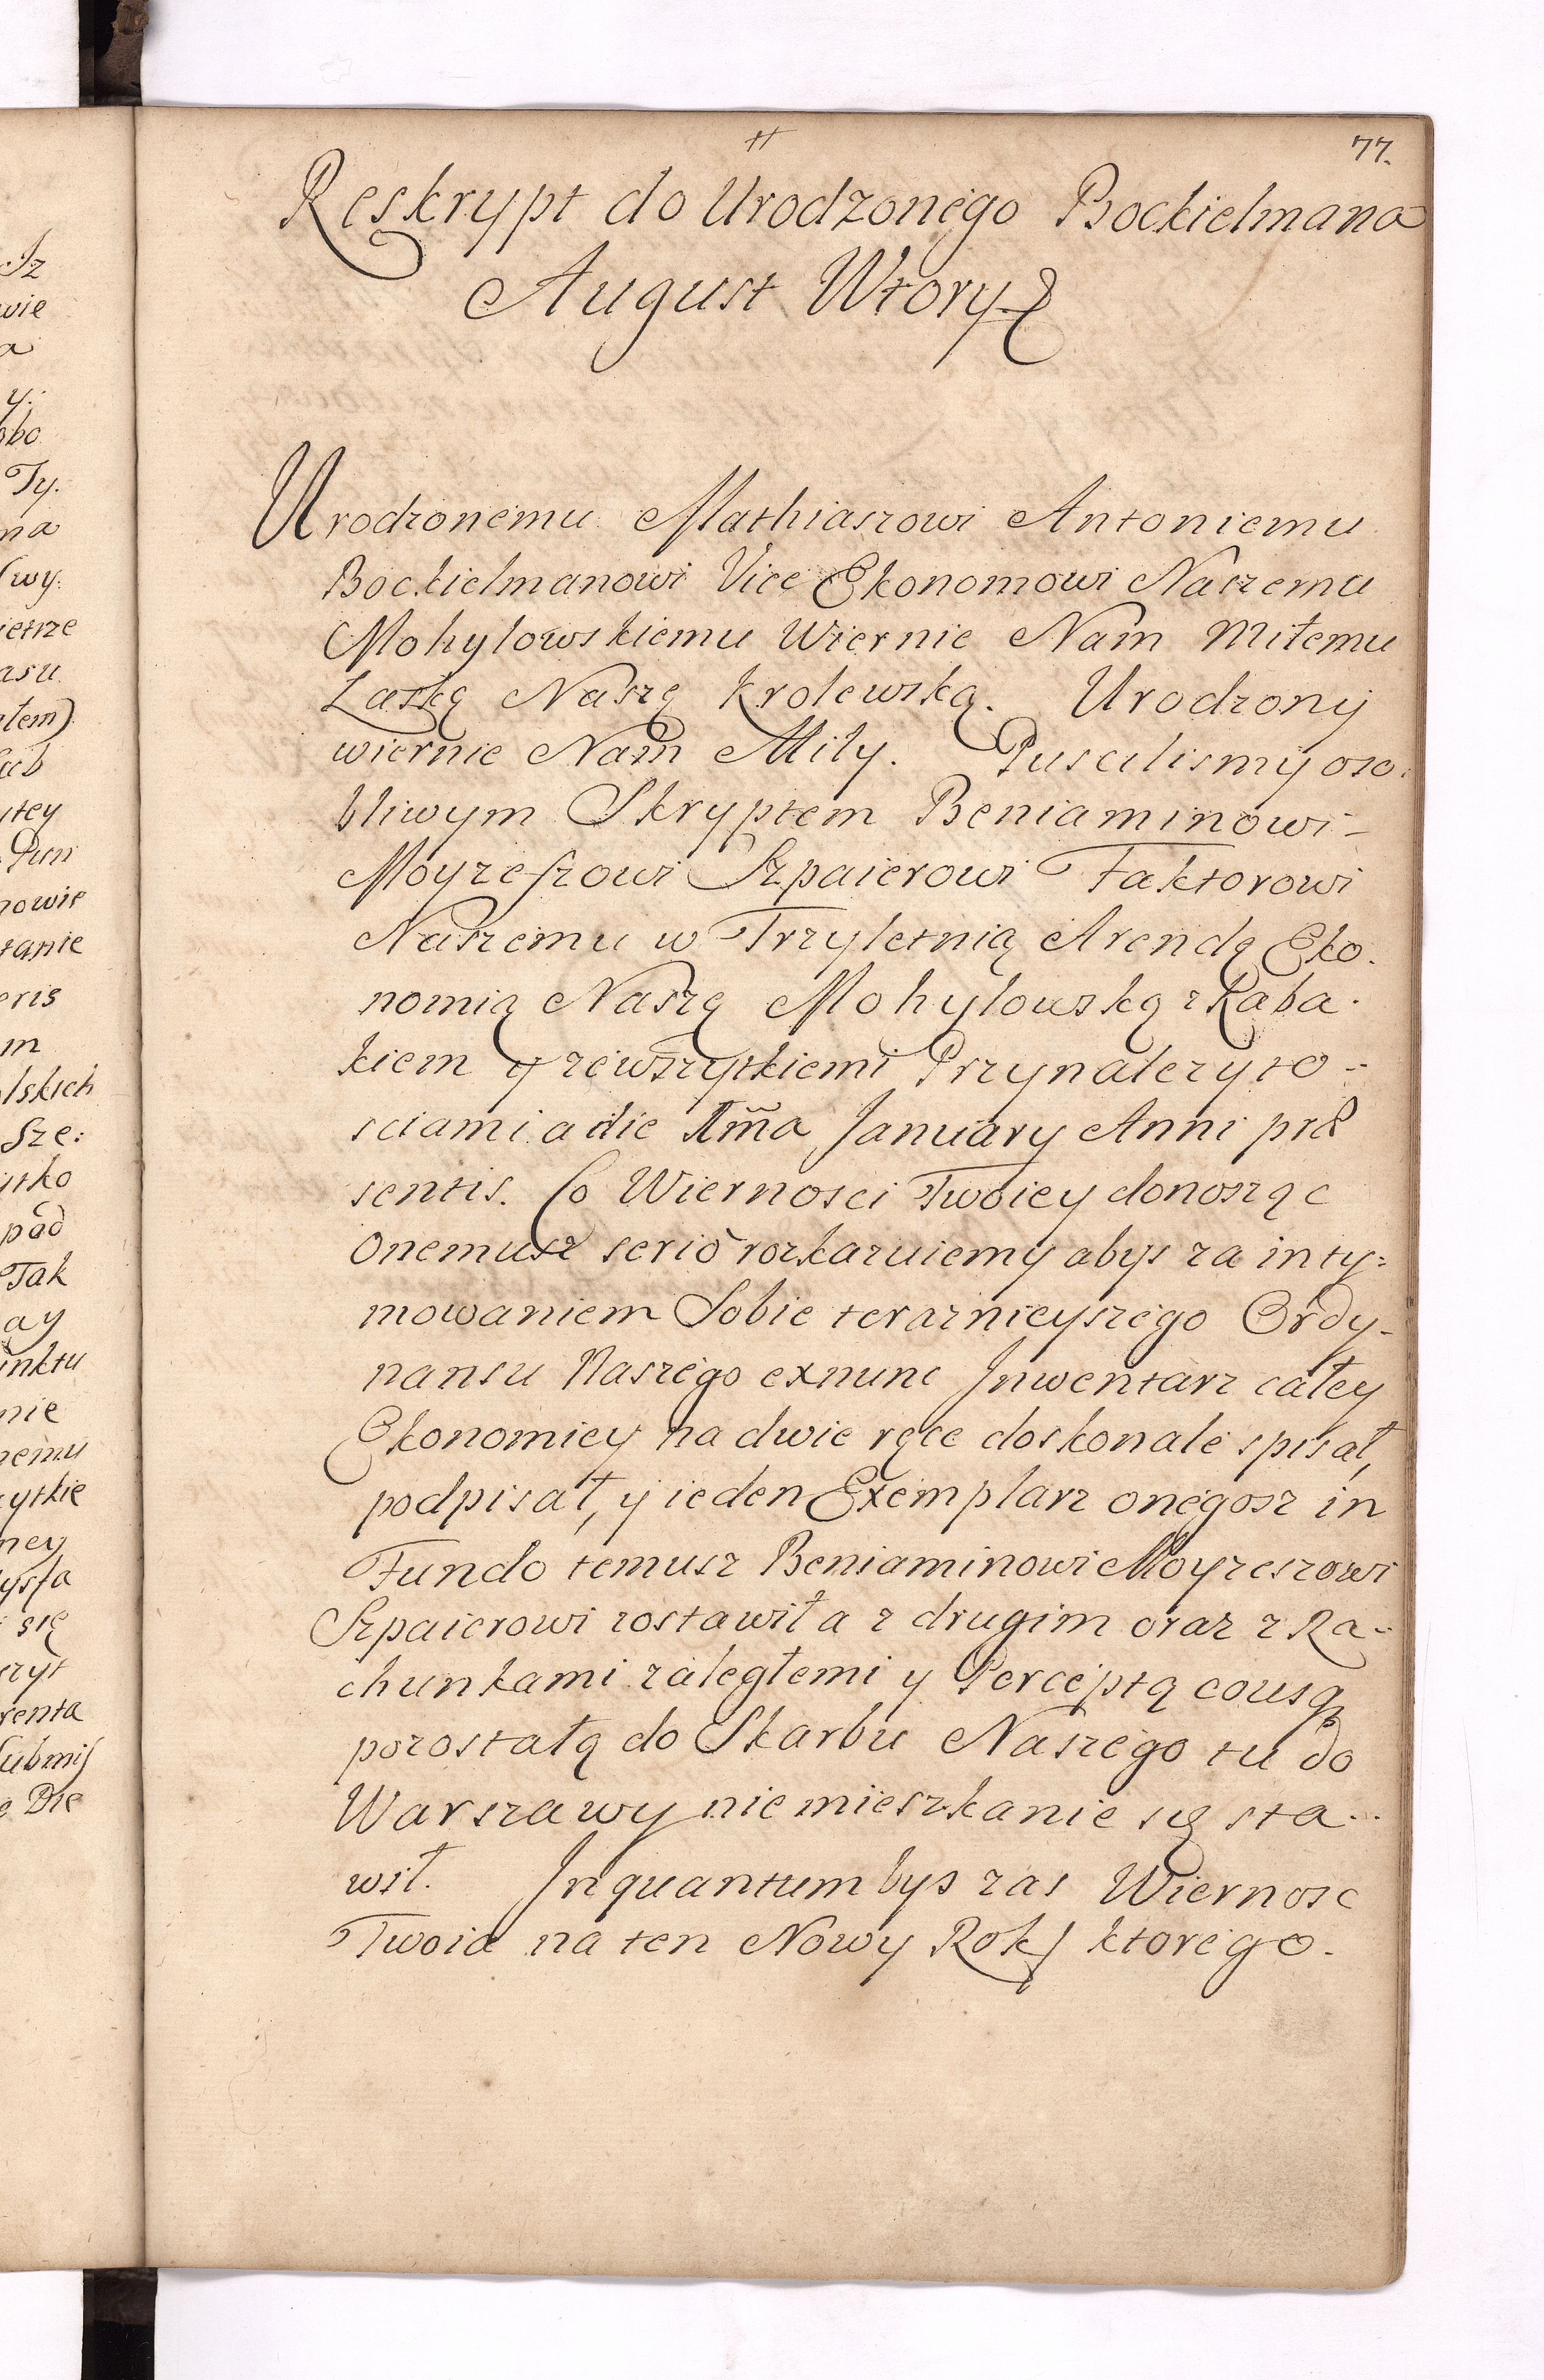 77.
Reskrypt do Urodzonego Bockielmana
August Wtory &
Urodzonemu Mathiaszowi Antoniemu
Bockielmanowi Vice Ekonomowi Naszemu
Mohylowskiemu Wiernie Nam Miłemu
Łaskę Naszę Krolewską. Urodzony
wiernie Nam Miły. Puscilismy oso:
bliwym Skryptem Beniaminowi-
Moyzeszowi Szpaierowi Faktorowi
Naszemu w Trzyletnią Arendę Eko.
nomią Naszę Mohylowską z Kaba.
kiem y zewszytkiemi Przynalezyto-
sciami a die 1ma January Anni præ
sentis. Co Wiernosci Twoiey donosząc
Onemusz serio rozkazuiemy abys za inty:
mowaniem Sobie teraznieyszego Ordy-
nansu Naszego exnunc Jnwentarz całey
Ekonomiey na dwie ręce doskonale spisał,
podpisał, y ieden Exemplarz onegosz in
Fundo temusz Beniaminowi Moyzeszowi
Szpaierowi zostawił a z drugim oraz z Ra-
chunkami zaległemi y Perceptą cousq
pozostałą do Skarbu Naszego tu do
Warszawy nie mieszkanie się sta..
wił. Jnquantum bys zas Wiernosc
Twoia na ten Nowy Rok/ ktorego.
Jz
wie
a
y:
obo
Ty.
na
wy:
ietrze
asu
łem)
ytey
Pun
nowie
tanie
eris
m
lskich
Sze:
ytko
pad
Tak
ay
unktu
nie
nemu
zytkie
ney
się
zyt
renta
Submis
Die